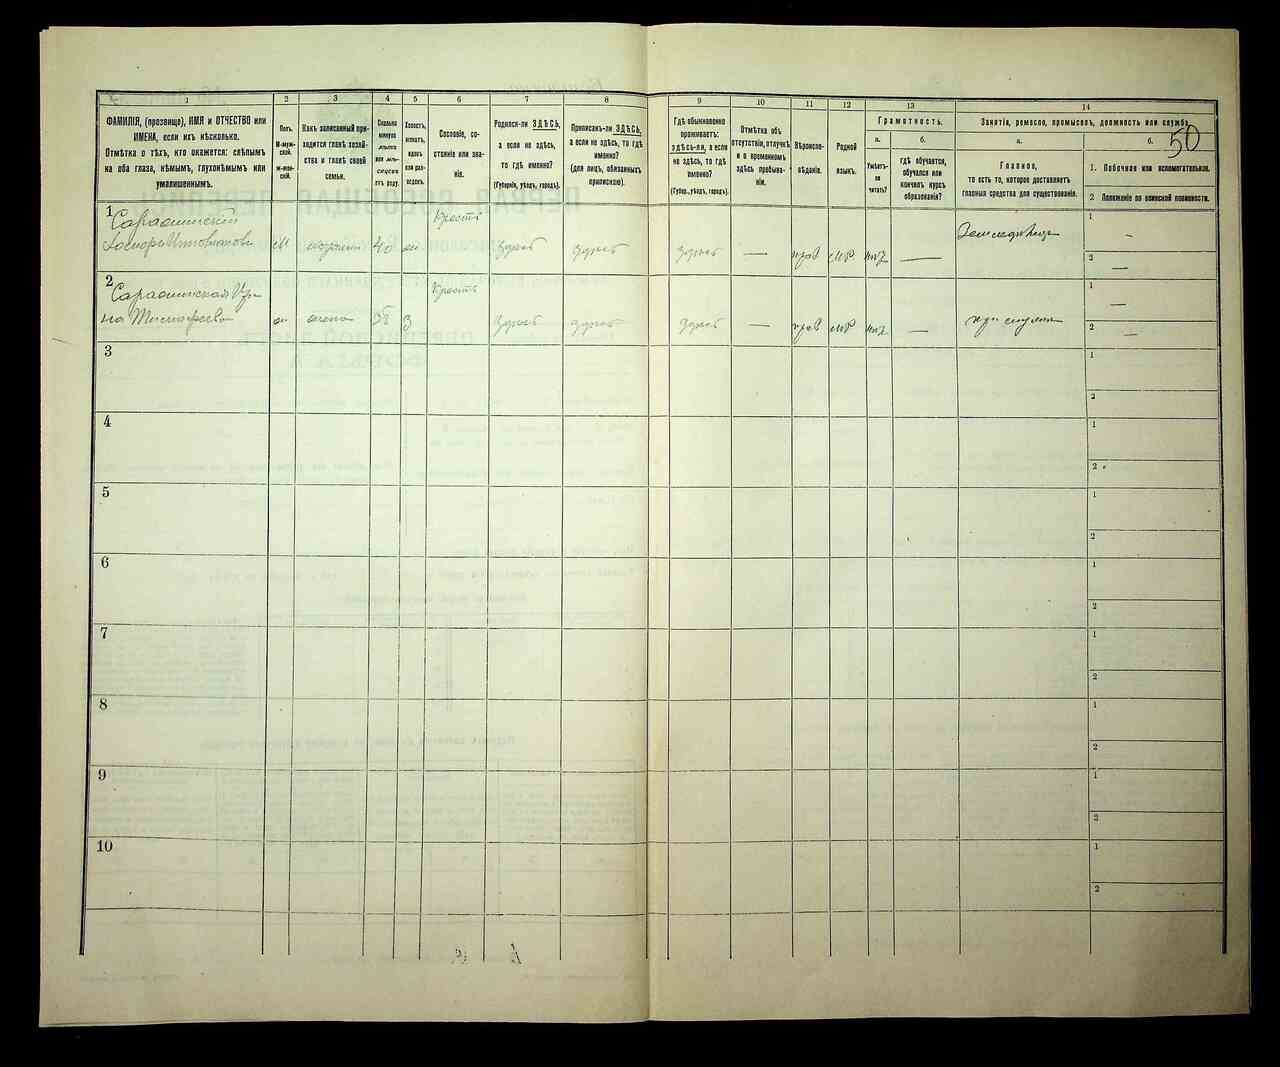 50
1
2
3
4
5
6
7
8
9
10
11
12
13
14
ФАМИЛІЯ, (прозвище), ИМЯ и ОТЧЕСТВО или
ИМЕНА, если ихъ нѣсколько.
Отмѣтка о тѣхъ, кто окажется: слѣпымъ
на оба глаза, нѣмымъ, глухонѣмымъ или
умалишеннымъ.
Полъ.
М-муж-
ской.
ж-жен-
скій.
Какъ записанный при-
ходится главѣ хозяй-
ства и главѣ своей
семьи.
Сколько
минуло
лѣтъ
или мѣ-
сяцевъ
отъ роду.
Холостъ,
женатъ,
вдовъ
или раз-
веденъ.
Сословіе, со-
стояніе или зва-
ніе.
Родился-ли ЗДѢСЬ,
а если не здѣсь,
то гдѣ именно?
(Губернія, уѣздъ, городъ).
Приписанъ-ли ЗДѢСЬ,
а если не здѣсь, то гдѣ
именно?
(для лицъ, обязанныхъ
припискою).
Гдѣ обыкновенно
проживаетъ:
здѣсь-ли, а если
не здѣсь, то гдѣ
именно?
(Губер., уѣздъ, городъ).
Отмѣтка объ
отсутствіи, отлучкѣ
и о временномъ
здѣсь пребыва-
ніи.
Вѣроиспо-
вѣданіе.
Родной
языкъ.
Грамотность.
а.
Умѣетъ-
ли
читать?
б.
гдѣ обучается,
обучался или
кончилъ курсъ
образованія?
Занятія, ремесло, промыселъ, должность или служба.
а.
Главное,
то есть то, которое доставляетъ
главныя средства для существованія.
б.
1. Побочное или вспомогательное.
2 Положеніе по воинской повинности.
1
м
40
Крестъ
здѣсь
здѣсь
здѣсь
—
прав
мр
нѣт
—
Земледѣлец
1 —
2 —
2
жена
Крестъ
здѣсь
здѣсь
здѣсь
—
прав
мр
нѣт
—
при мужѣ
1 —
2 —
3
1
2
4
1
2
5
1
2
6
1
2
7
1
2
8
1
2
9
1
2
10
1
2